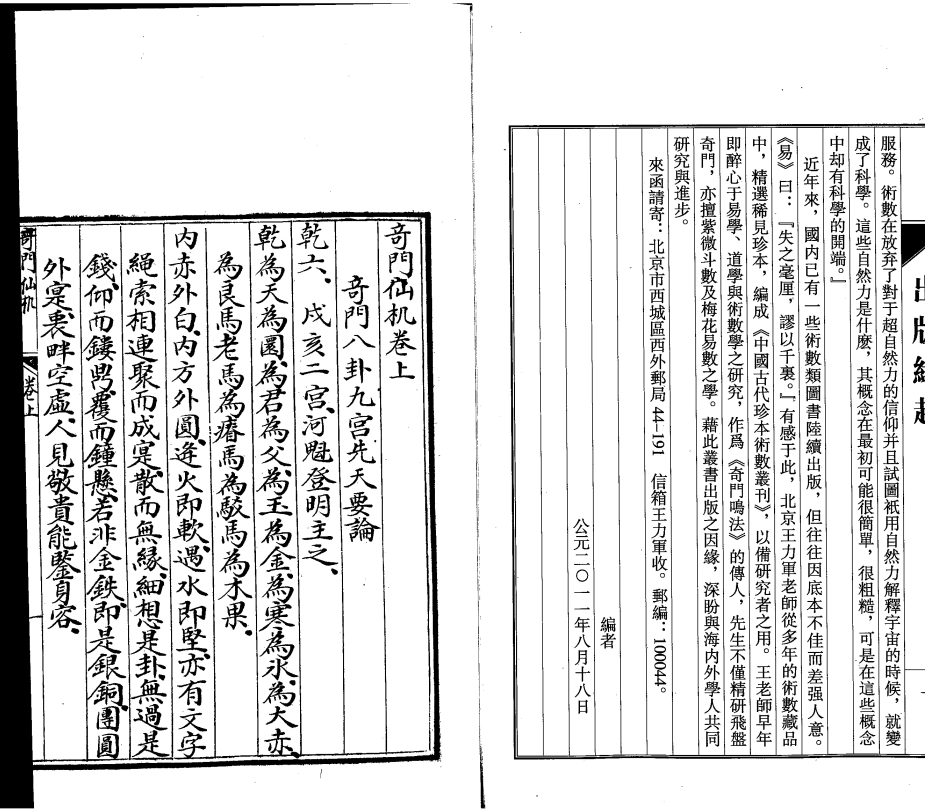 出版緣起
服務。術數在放弃了對于超自然力的信仰并且試圖衹用自然力解釋宇宙的時候，就變
成了科學。這些自然力是什麽，其概念在最初可能很簡單，很粗糙，可是在這些概念
中却有科學的開端。』
近年來，國内已有一些術數類圖書陸續出版，但往往因底本不佳而差强人意。
《易》曰：『失之毫厘，謬以千裏。』有感于此，北京王力軍老師從多年的術數藏品
中，精選稀見珍本，編成《中國古代珍本術數叢刊》，以備研究者之用。王老師早年
即醉心于易學、道學與術數學之研究，作爲《奇門鳴法》的傳人，先生不僅精研飛盤
奇門，亦擅紫微斗數及梅花易數之學。藉此叢書出版之因緣，深盼與海内外學人共同
研究與進步。
來函請寄：北京市西城區西外郵局44-191　信箱王力軍收。郵編：100044。
編者
公元二〇一一年八月十八日
奇門仙机卷上
奇門八卦九宫先天要論
乾六、戌亥二宫、河魁登明主之、
乾為天為圜、為君為父、為玉為金、為寒為氷、為大赤、
為良馬老馬、為瘠馬為駁馬為木果、
内赤外白、内方外圓、逢火即軟、遇水即堅、亦有文字
繩索相連聚而成寔、散而無緣、細想是卦、無過是
錢、仰而鏤、覆而鐘懸、若非金鉄、即是銀銅、團圓
外寔、裹畔空虚、人見敬貴、能鑒自容、
奇門仙机
卷上
一